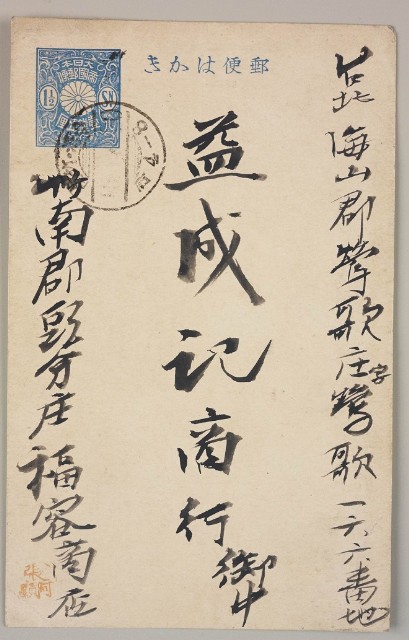 郵便はかき
大日本帝國郵便
1½
Sn
台北海山郡鶯歌庄字鶯歌一六六番地
益成記商行御中
竹南郡頭分庄福容商店
張阿